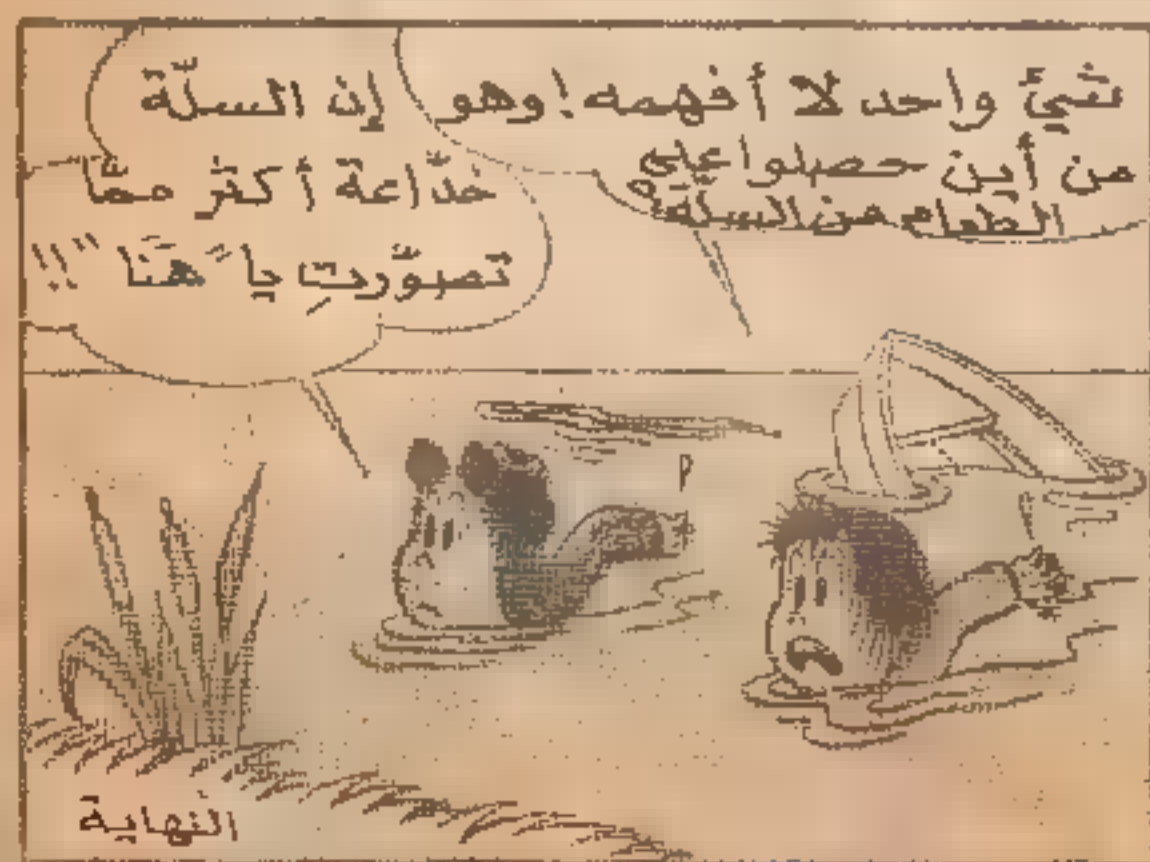 شيئ واحد لا أفهمه! وهو
من أين حصلوا على
الطعام من السلّة؟
إن السلّة
خدّاعة أكثر ممّا
تصوّرتِ يا "هنا"!!
النهاية